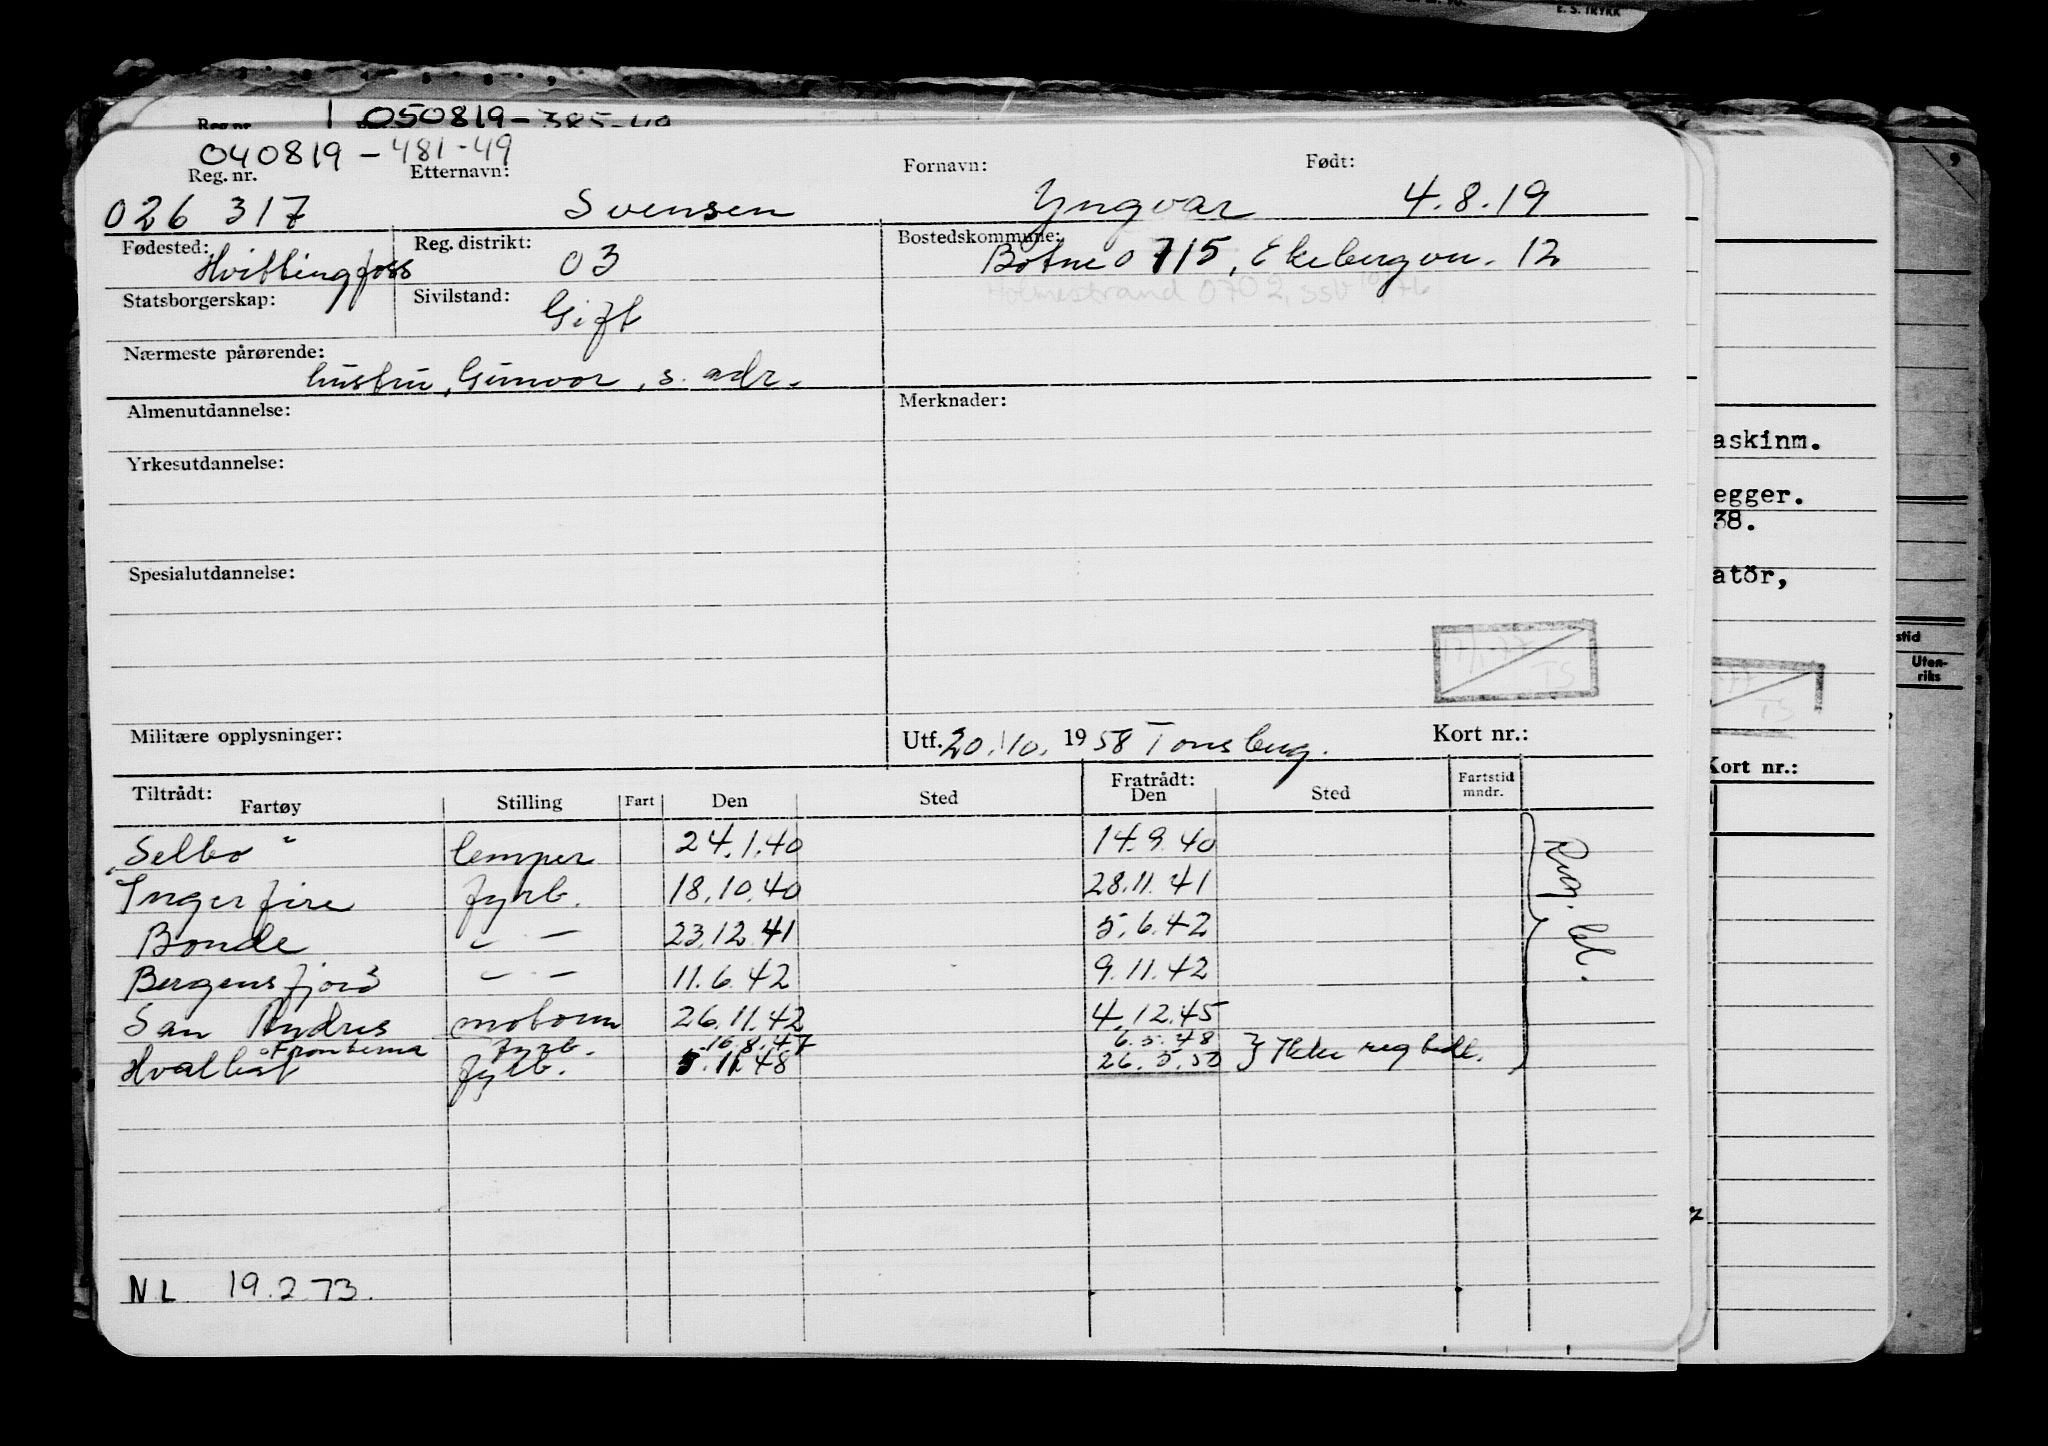 E. S. TRYKK
Reg. nr. 1 050819-385-49
040819-481-49
Reg. nr. Etternavn: Fornavn: Født:
026 317 Svensen Yngvar 4.8.19
Fødested: Hvittingfoss Reg. distrikt: 03 Bostedskommune: Botne 0715, Ekebergvn. 12
Holmestrand 0702,
Statsborgerskap: Sivilstand: Gift
Nærmeste pårørende:
hustru, Gunvor, s. adr.
Almenutdannelse: Merknader:
askinm.
Yrkesutdannelse:
egger.
38.
Spesialutdannelse:
atör,
17/1-77
TS
stid
Uten-
riks
-77
TS
Militære opplysninger: Utf. 20./10. 1958 Tønsberg. Kort nr.:
Kort nr.:
Tiltrådt: Fratrådt:
Fartøy Stilling Fart Den Sted Den Sted Fartstid mndr.
"Selbo" lemper 24.1.40 14.9.40
Ingerfire fyrb. 18.10.40 28.11.41
Bonde - " - 23.12.41 5.6.42
Bergensfjord - " - 11.6.42 9.11.42
San Andres motorm 26.11.42 4.12.45
Fronterna fyrb. 16.8.47 6.5.48
Hvalbest fyrb. 5.11.48 26.5.50 } Ikke reg bekl.
NL 19.2.73.